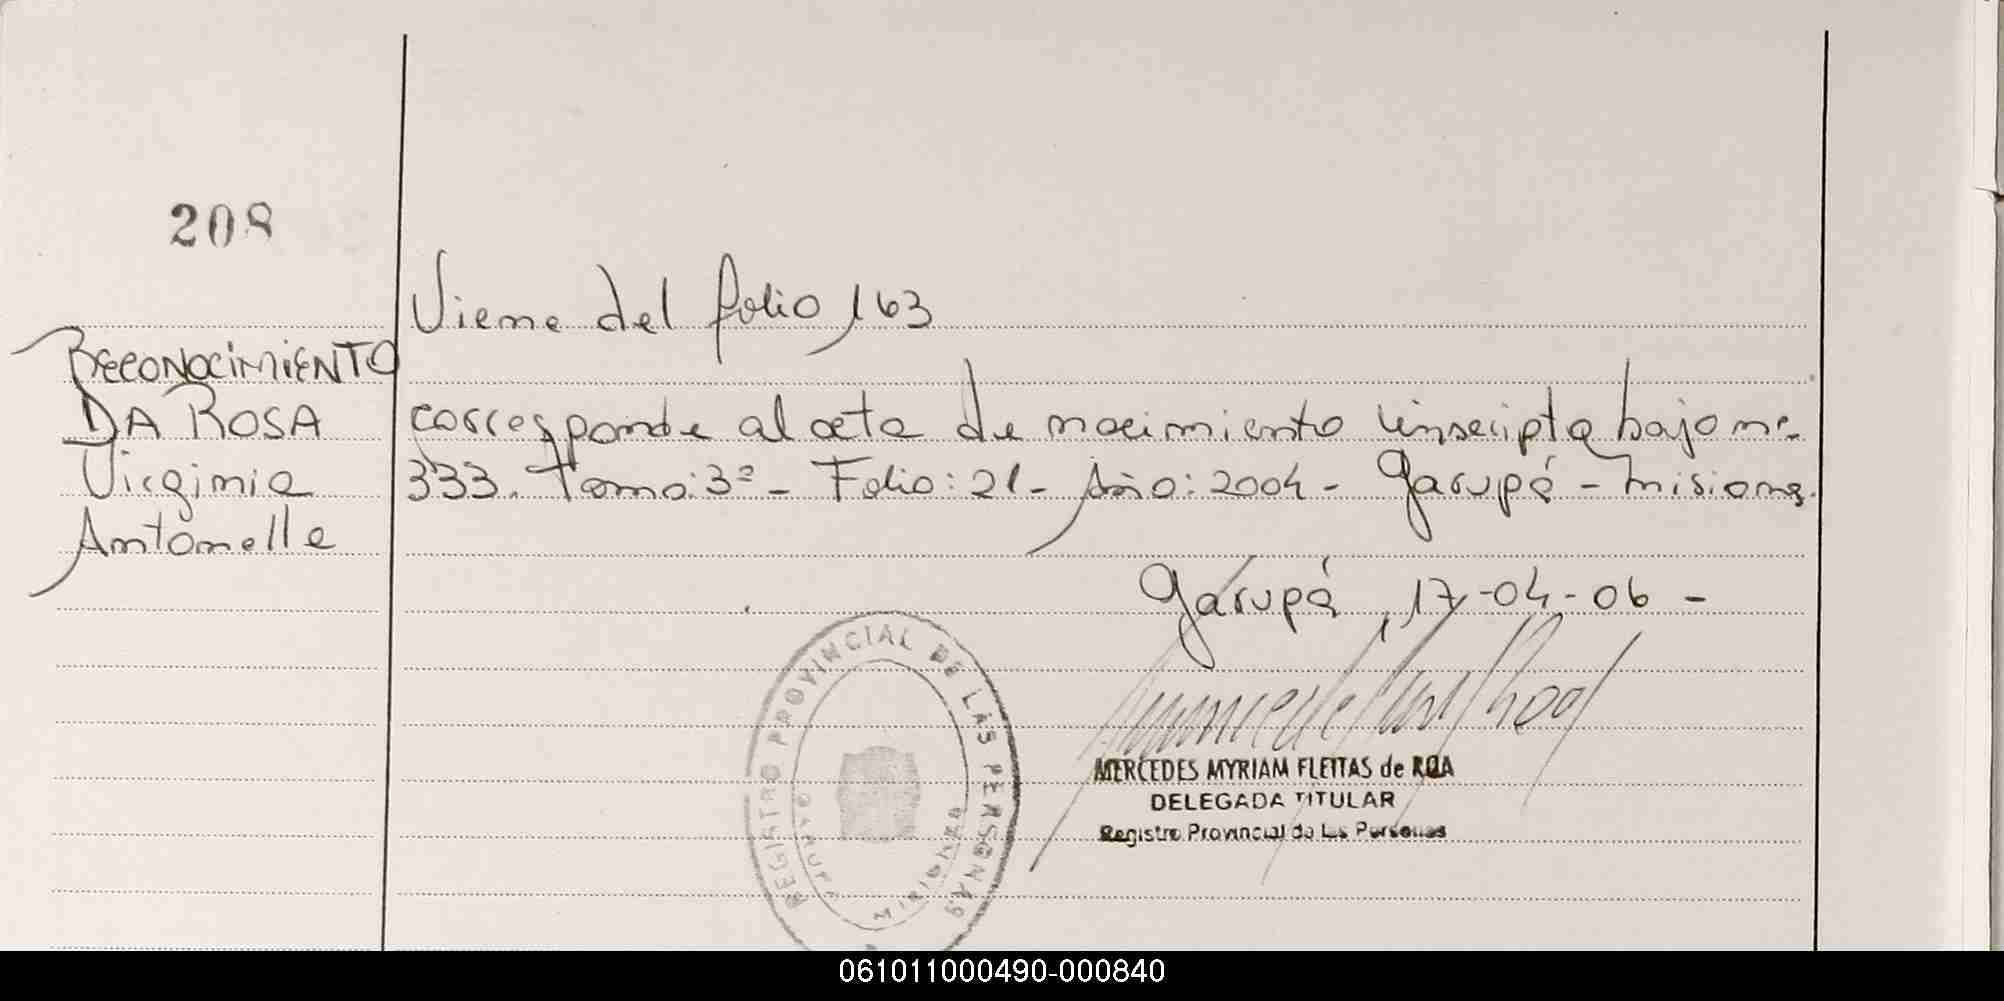 208
Viene del folio 163
RECONOCIMIENTO
DA ROSA
Virginia
Antonella
corresponde al acta de nacimiento inscripta bajo nº
333. Tomo: 3º - Folio: 21 - Año: 2004 - Garupá - Misiones.
Garupá, 17-04-06 -
REGISTRO PROVINCIAL DE LAS PERSONAS
GARUPA
MISIONES
MERCEDES MYRIAM FLEITAS de ROA
DELEGADA TITULAR
Registro Provincial de las Personas
061011000490-000840